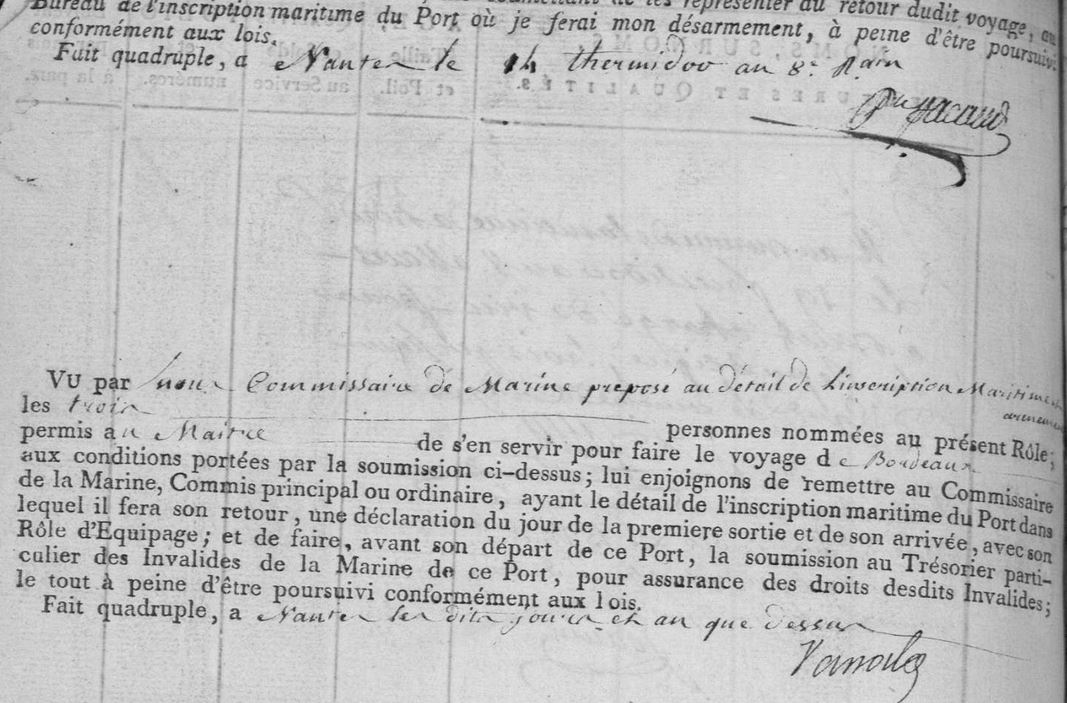 Bureau de l'inscription maritime du Port où je ferai mon désarmement, à peine d'être poursuivi
conformément aux lois.
Fait quadruple, a Nantes le 14 thermidor an 8e
VU par nous Commissaire de Marine preposé au détail de l'inscription Maritime
les trois personnes nommées au présent Rôle;
permis au Maitre de s'en servir pour faire le voyage de Bordeaux
aux conditions portées par la soumission ci-dessus; lui enjoignons de remettre au Commissaire
de la Marine, Commis principal ou ordinaire, ayant le détail de l'inscription maritime du Port dans
lequel il fera son retour, une déclaration du jour de la premiere sortie et de son arrivée, avec son
Rôle d'Equipage; et de faire, avant son départ de ce Port, la soumission au Trésorier parti-
culier des Invalides de la Marine de ce Port, pour assurance des droits desdits Invalides;
le tout à peine d'être poursuivi conformément aux lois.
Fait quadruple, a Nantes les dits jours et an que dessus